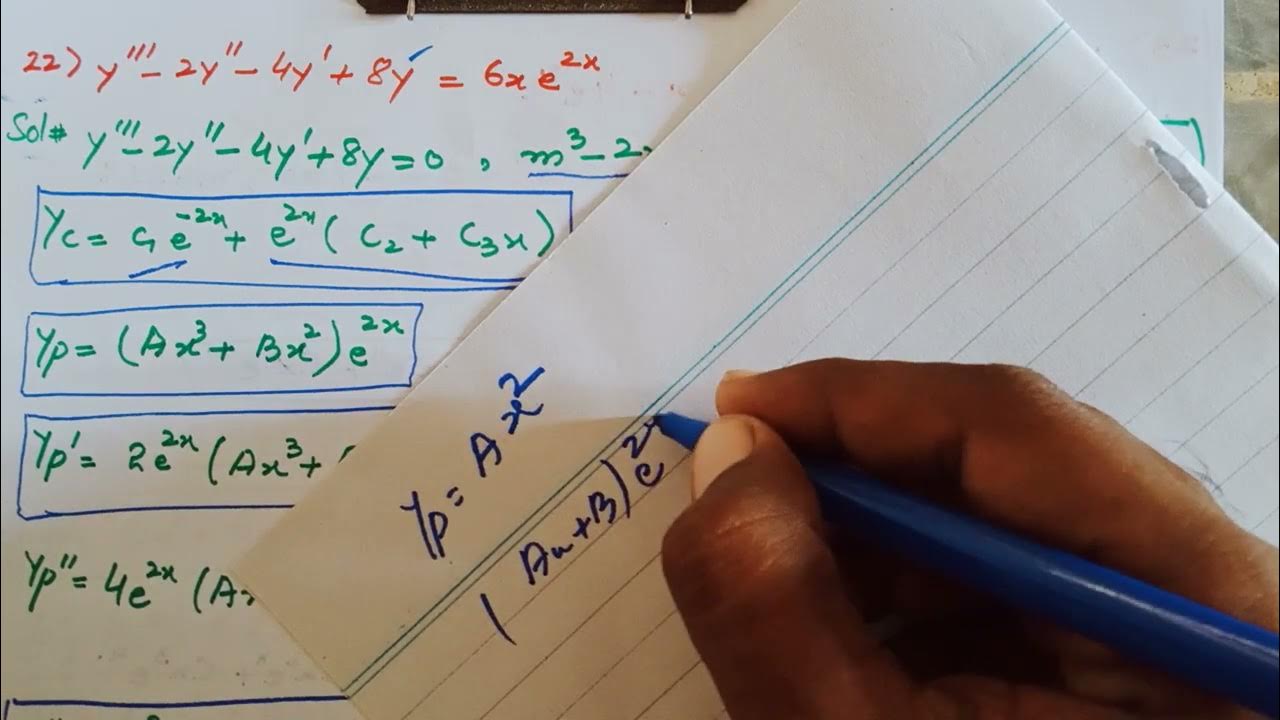 22> y''' - 2y'' - 4y' + 8y = 6x e^{2x}
Sol# y''' - 2y'' - 4y' + 8y = 0 , m^3 - 2
Yc = C1 e^{-2x} + e^{2x} ( C2 + C3x )
Yp = (Ax^3 + Bx^2) e^{2x}
Yp' = 2e^{2x} (Ax^3 +
Yp'' = 4e^{2x} (Ax
Yp = A x^2
( Ax + B ) e^{2x}